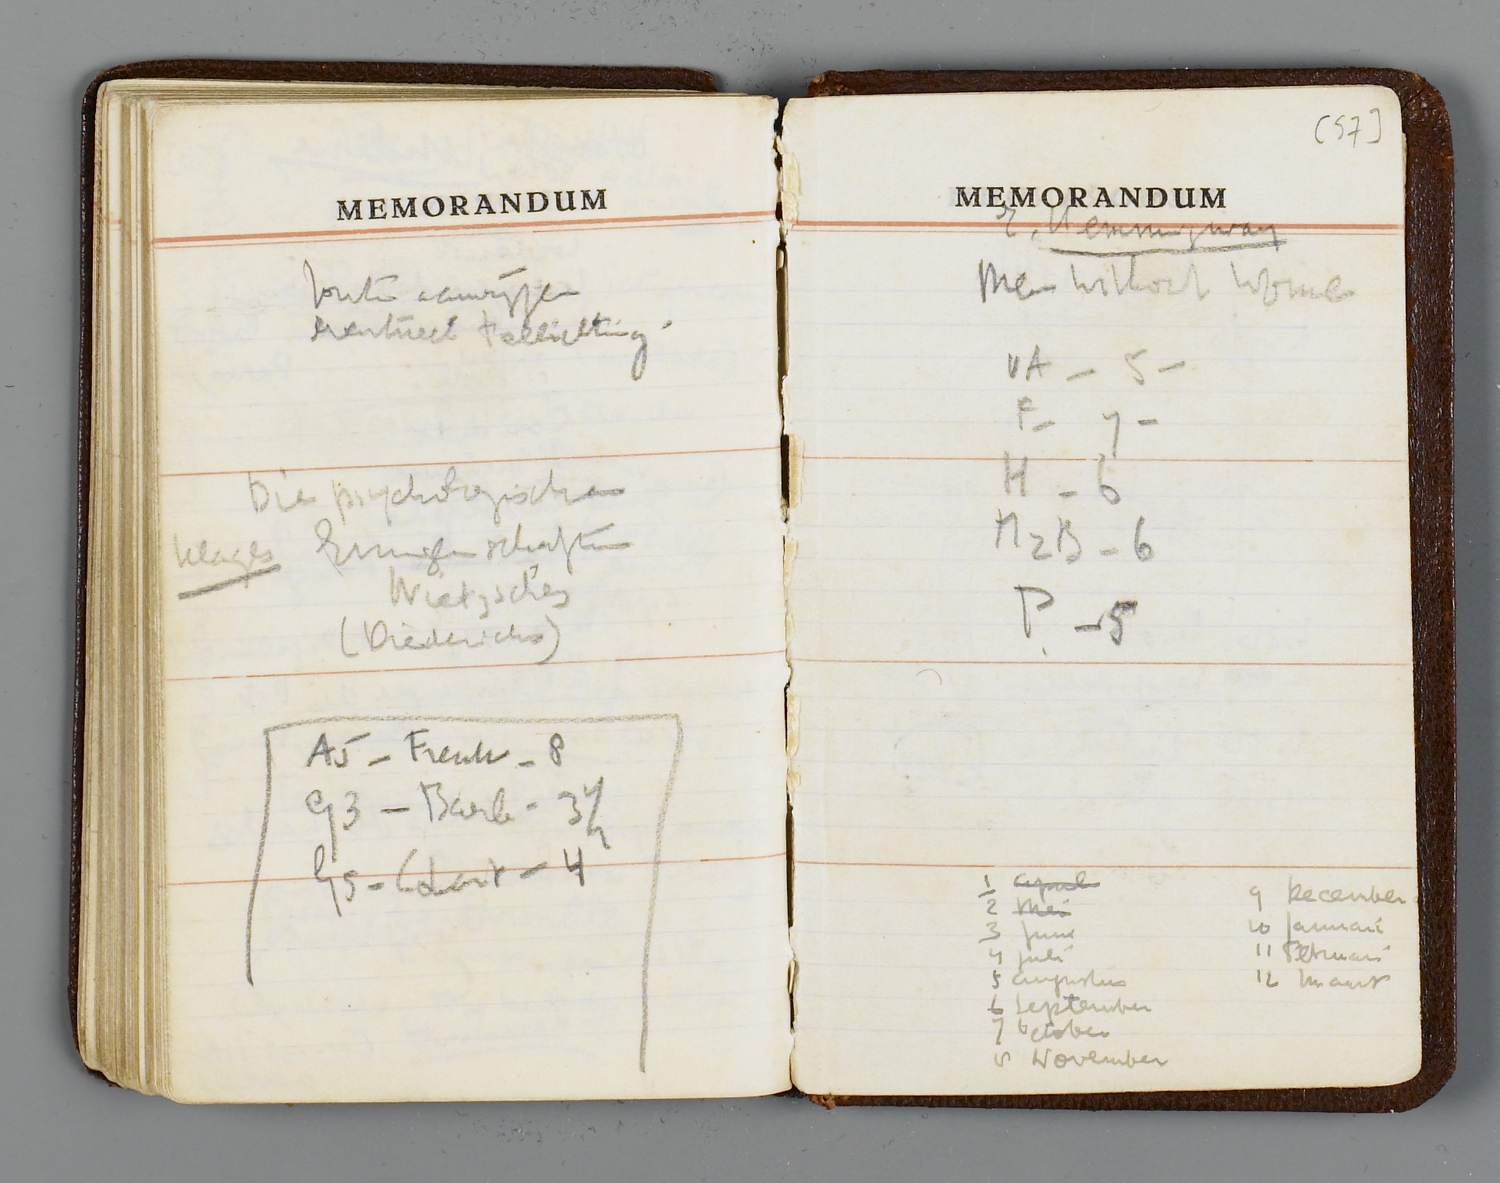 MEMORANDUM
fouten aanwijzen
eventueel toelichting.
Die psychologischen
Klages Errungenschaften
Nietzsches
(Diederichs)
A5 - Frenk - 8
G3 - Barb - 3 1/2
G5 - - 4
[57]
MEMORANDUM
E. Hemmingway
Men Without Women
VA - 5 -
F - 7 -
H - 6
MzB - 6
P. - 5
1 april
2 Mei
3 Juni
4 Juli
5 augustus
6 September
7 October
8 November
9 December
10 Januari
11 Februari
12 Maart